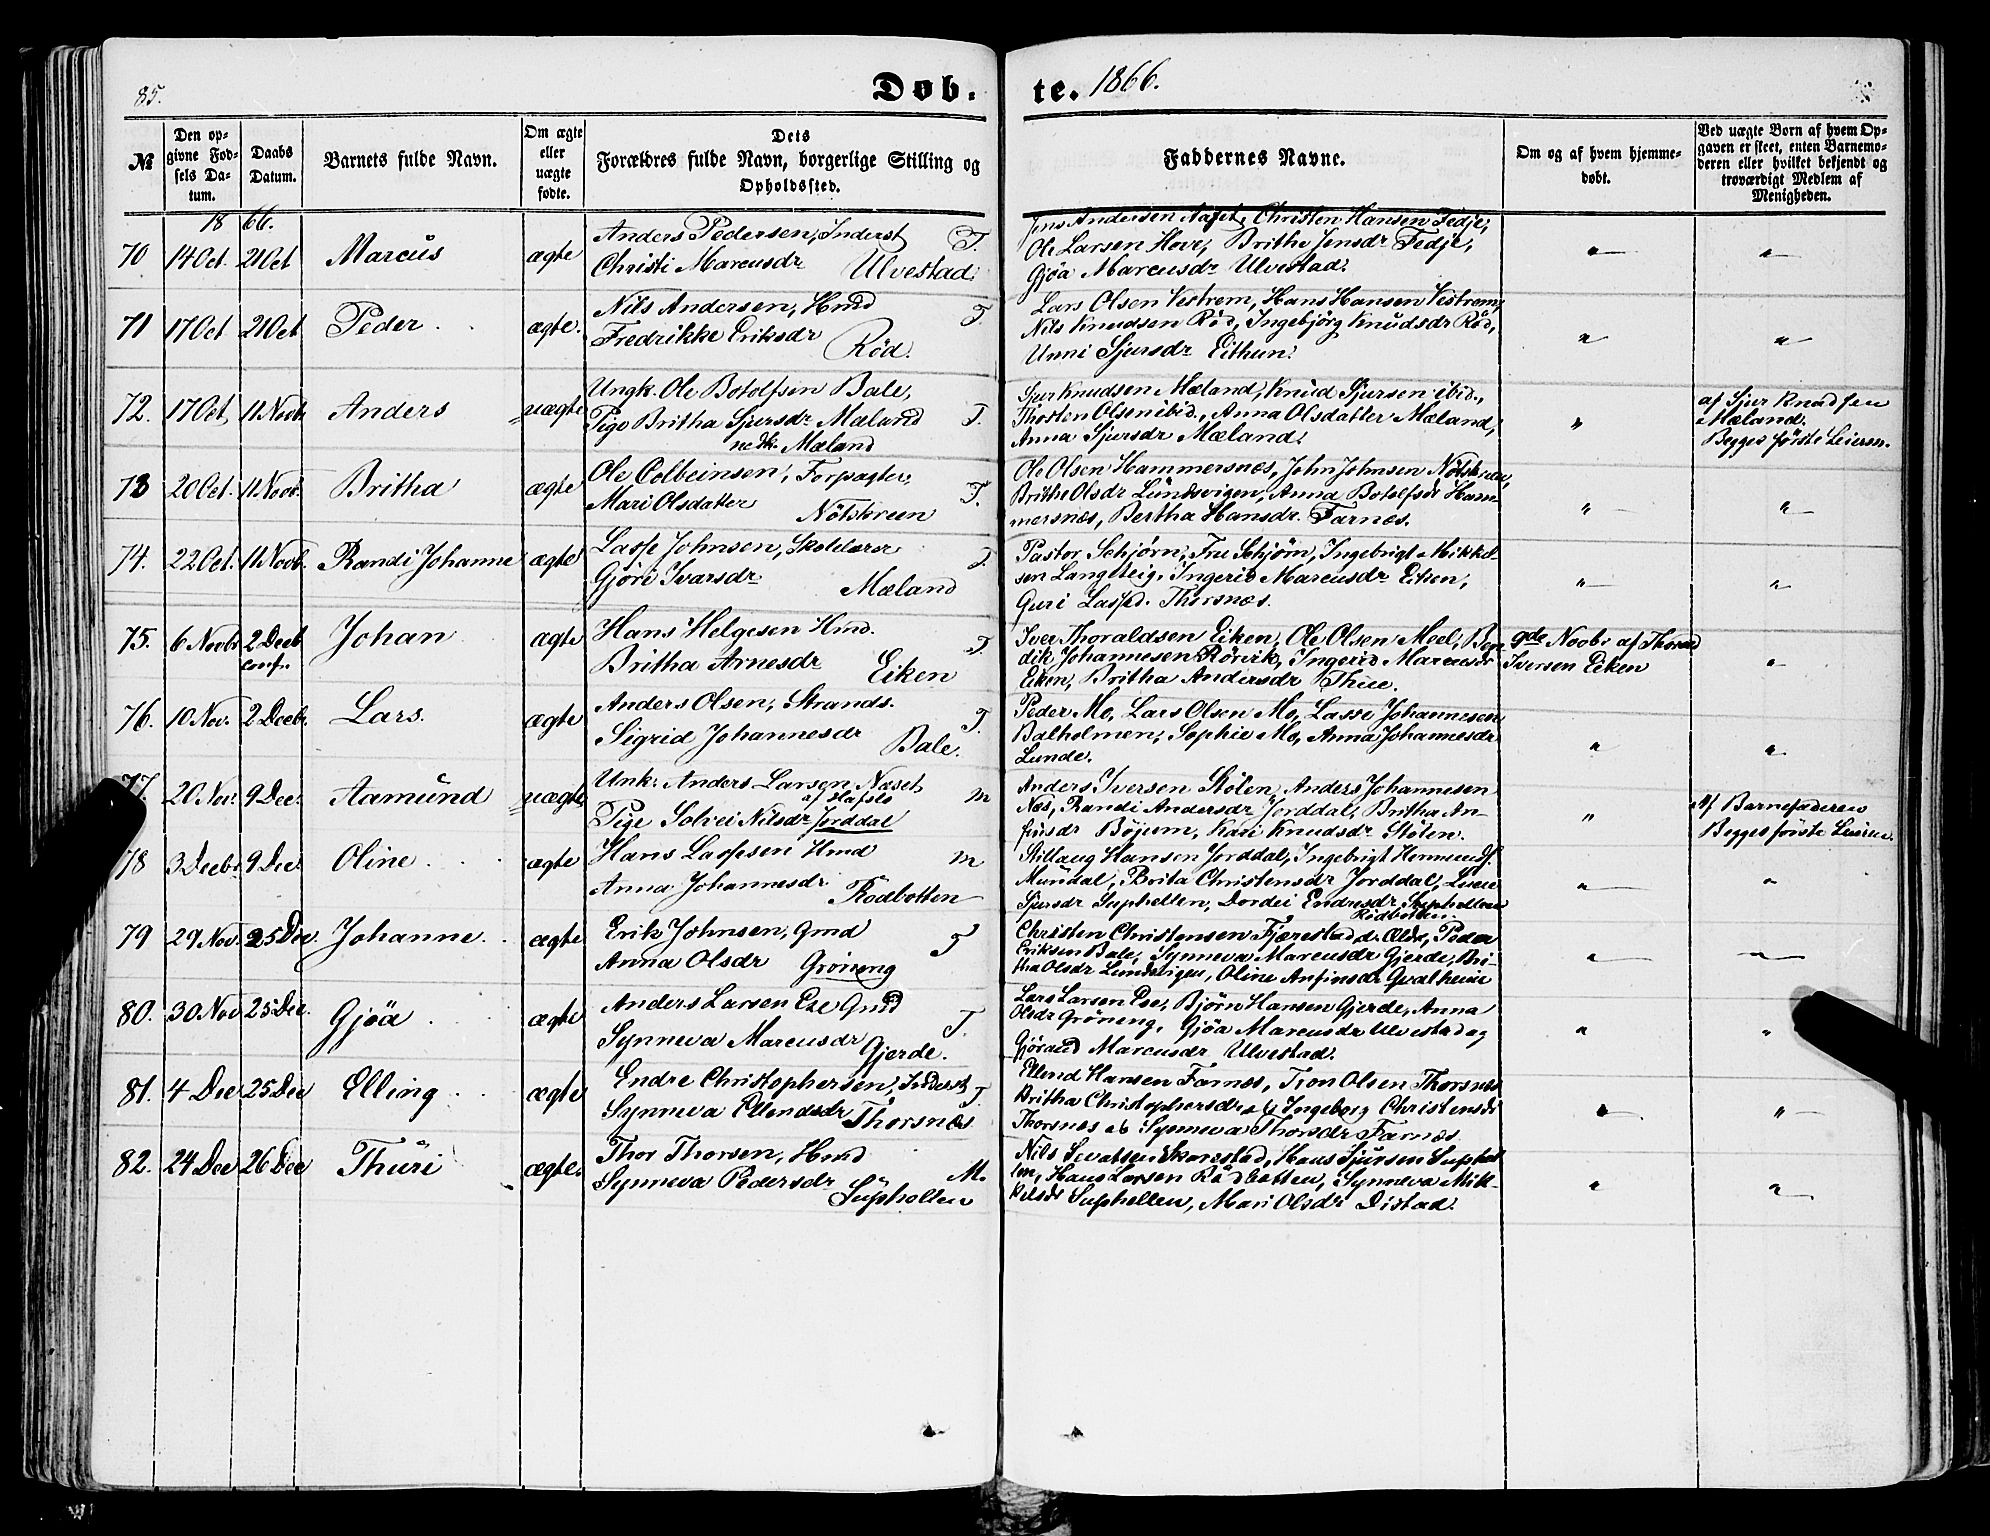 85.
Døb.
te. 1866.
№
Den op-
givne Fød-
sels Da-
tum.
Daabs
Datum.
Barnets fulde Navn.
Om ægte
eller
uægte
fødte.
Dets
Forældres fulde Navn, borgerlige Stilling og
Opholdssted.
Faddernes Navne.
Om og af hvem hjemme-
døbt.
Ved uægte Børn af hvem Op-
gaven er skeet, enten Barnemo-
deren eller hvilket bekjendt og
troværdigt Medlem af
Menigheden.
1866.
70 14 Oct. 21 Oct Marcus ægte
Anders Pedersen, Inderst T.
Christi Marcusdr Ulvestad.
Jens Andersen Naset, Christen Hansen Fedje,
Ole Larsen Hove, Brithe Jensdr Fedje,
Gjøa Marcusdr Ulvestad.
" "
71 17 Oct 21 Oct Peder ægte.
Nils Andersen, Hmd T.
Fredrikke Eriksdr Rød.
Lars Olsen Vestrem, Hans Hansen Vestrem,
Nils Knudsen Rød, Ingebjörg Knudsdr Rød,
Unni Sjursdr Eithun.
" "
72. 17 Oct 11 Novb Anders uægte
Ungk. Ole Botolfsen Bale,
Pige Britha Sjursdr Mæland T.
Mæland
Sjur Knudsen Mæland, Knud Sjursen ibid.,
Thosten Olsen ibid., Anna Olsdatter Mæland,
Anna Sjursdr Mæland.
"
af Sjur Knudsen
Mæland.
Begges første Leierm.
73 20 Oct. 11 Novb. Britha ægte
Ole Colbeinsen, Forpagter,
Mari Olsdatter Nötskreen T.
Ole Olsen Hammersnæs, John Johnsen Nötskreen,
Brithe Olsdr Lundsvigen, Anna Botolfsdr Ham-
mersnæs, Bertha Hansdr. Farnes.
" "
74. 22 Oct. 11 Novb. Randi Johanne ægte
Lasse Johnsen, Skolelærer T.
Gjöre Ivarsdr Mæland
Pastor Schjörn, Frue Schjörn, Ingebrigt Mikkel-
sen Langeteig, Ingerid Marcusdr Eiken,
Guri Lassed. Thorsnæs.
" "
75. 6 Novbr 2 Decb Johan ægte
conf.
Hans Helgesen Hmd. T.
Britha Arnesdr Eiken
Iver Thoraldsen Eiken, Ole Olsen Meel, Ben-
dik Johannesen Rörvik, Ingerid Marcusdr
Eiken, Britha Andersdr Thue.
9de Novbr af Thorald
Iversen Eiken
"
76. 10 Nov. 2 Decbr. Lars. ægte
Anders Olsen, Strands. T.
Sigrid Johannesdr Bale.
Peder Mo, Lars Olsen Mo, Lasse Johannesen
Balholmen, Sophie Mo, Anna Johannesdr
Lunde.
" "
77. 20 Nov. 9 Dec. Aamund uægte
Unk. Anders Larsen Næset m
af Hafslo
Pige Solvei Nilsdr Jorddal
Anders Iversen Stölen, Anders Johannesen
Næs, Randi Andersdr Jorddal, Britha An-
finsdr Böjum, Kari Knudsdr Stölen.
"
Af Barnefaderen
Begges første Leierm.
78 3 Decbr 9 Dec Oline ægte
Hans Lassesen Hmd m
Anna Johannesdr Rødbotten
Stillaug Hansen Jorddal, Ingebrigt Hermunds.
Mundal, Brita Christensdr Jorddal,
Sjursdr Suphellen, Dordei Endresdr Suphellen
Rödbotten.
" "
79 29 Nov. 25 Dec. Johanne. ægte
Erik Johnsen, Gmd T
Anna Olsdr Gröneng
Christen Christensen Fjærestad d. Ældr, Peder
Eriksen Bale, Synneva Marcusdr Gjerde, Bri-
tha Olsdr Lundsvigen, Oline Anfinsdr Qvalheim
" "
80. 30 Nov 25 Dec. Gjøa ægte
Anders Larsen Ese Gmd T.
Synneva Marcusdr Gjerde.
Lars Larsen Ese, Bjørn Hansen Gjerde, Anna
Olsdr Gröneng, Gjöa Marcusdr Ulvestad og
Gjöraud Marcusdr Ulvestad.
" "
81. 4 Dec 25 Dec Elling ægte
Endre Christophersen, Inderst T.
Synneva Ellendsdr Thorsnæs
Ellend Hansen Farnæs, Tron Olsen Thorsnæs
Britha Christophersdr ib Ingeborg Christensdr
Thorsnæs ib Synneva Thorsdr Farnæs
" "
82. 24 Dec 26 Dec Thuri ægte.
Thor Thorsen, Hmd M.
Synneva Pedersdr Suphellen
Nils Sevatsen Skarestad, Hans Sjursen Suphel-
len, Hans Larsen Rödbotten, Synneva Mik-
kelsdr Suphellen, Mari Olsdr Distad.
" "